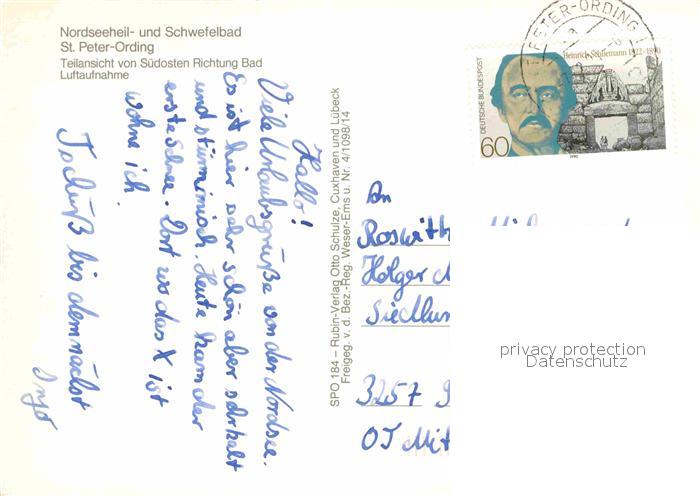 Nordseeheil- und Schwefelbad
St. Peter-Ording
Teilansicht von Südosten Richtung Bad
Luftaufnahme
Hallo!
Viele Urlaubsgrüße von der Nordsee.
Es ist hier sehr schön aber sehr kalt
und stürmisch. Heute kam der
erste Schnee. Dort wo das X ist
wohne ich.
Tschüß bis demnächst
Ingo
SPO 184 – Rubin-Verlag Otto Schulze, Cuxhaven und Lübeck
Freigeg. v. d. Bez.-Reg. Weser-Ems u. Nr. 4/1098/14
PETER-ORDING
DEUTSCHE BUNDESPOST
60
Heinrich Schliemann 1822-1890
1990
An
Roswith
Holger
Siedlun
3257
OT Mit
privacy protection
Datenschutz